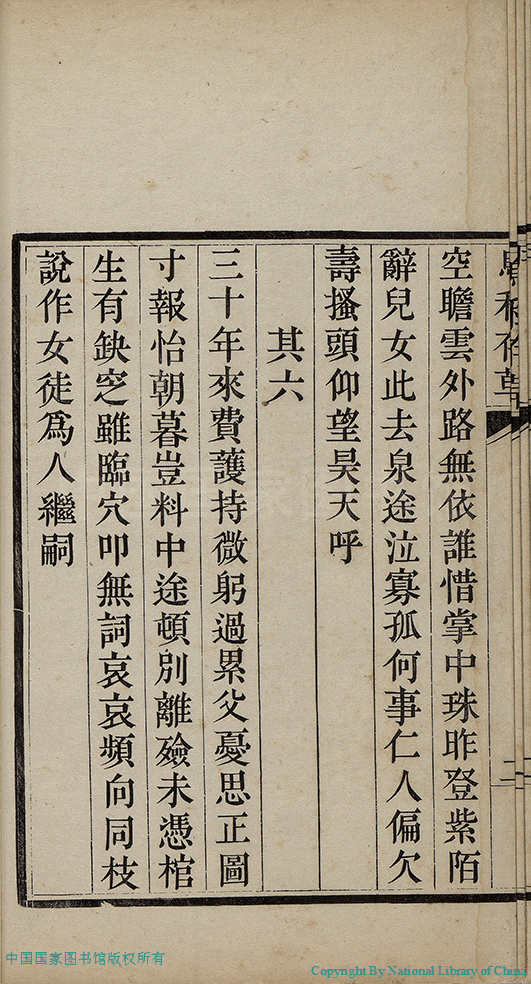 空瞻雲外路無依誰惜掌中珠昨登紫陌
辭兒女此去泉途泣寡孤何事仁人偏欠
壽搔頭仰望昊天呼
其六
三十年來費護持微躬過累父憂思正圖
寸報怡朝暮豈料中途頓別離殮未憑棺
生有缺窆雖臨穴叩無詞哀哀頻向同枝
說作女徒爲人繼嗣
二
中国国家图书馆版权所有
Copyright By National Library of China